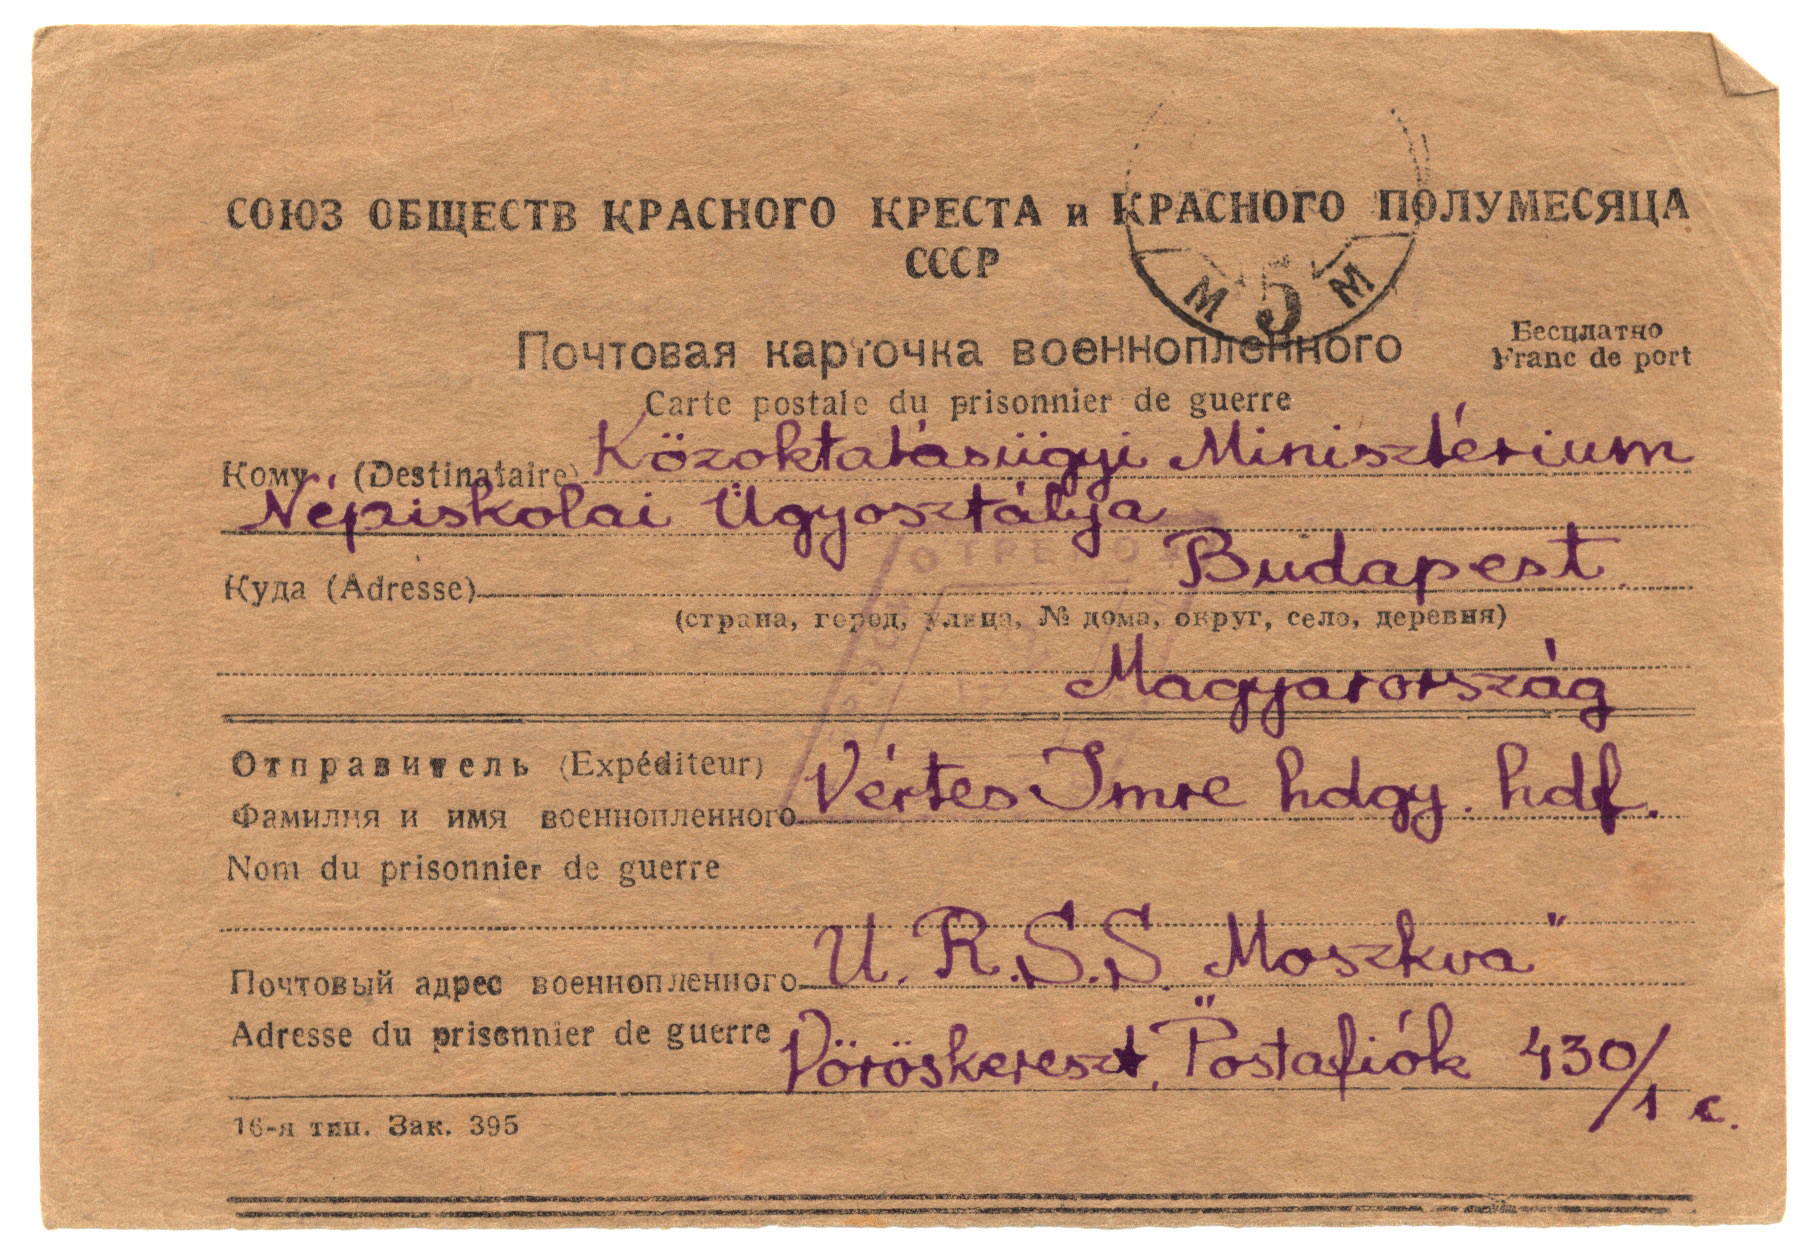 СОЮЗ ОБЩЕСТВ КРАСНОГО КРЕСТА и КРАСНОГО ПОЛУМЕСЯЦА
СССР
М 5 М
Почтовая карточка военнопленного
Бесплатно
Franc de port
Carte postale du prisonnier de guerre
Кому (Destinataire) Közoktatásügyi Minisztérium
Népiskolai Ügyosztálya
Куда (Adresse) Budapest
(страна, город, улица, № дома, округ, село, деревня)
Magyarország
Отправитель (Expéditeur)
Фамилия и имя военнопленного Vértes Imre hdgy. hdf.
Nom du prisonnier de guerre
Почтовый адрес военнопленного U.R.S.S. Moszkva"
Adresse du prisonnier de guerre Vöröskereszt, "Postafiók 430/1 c.
16-я тип. Зак. 395